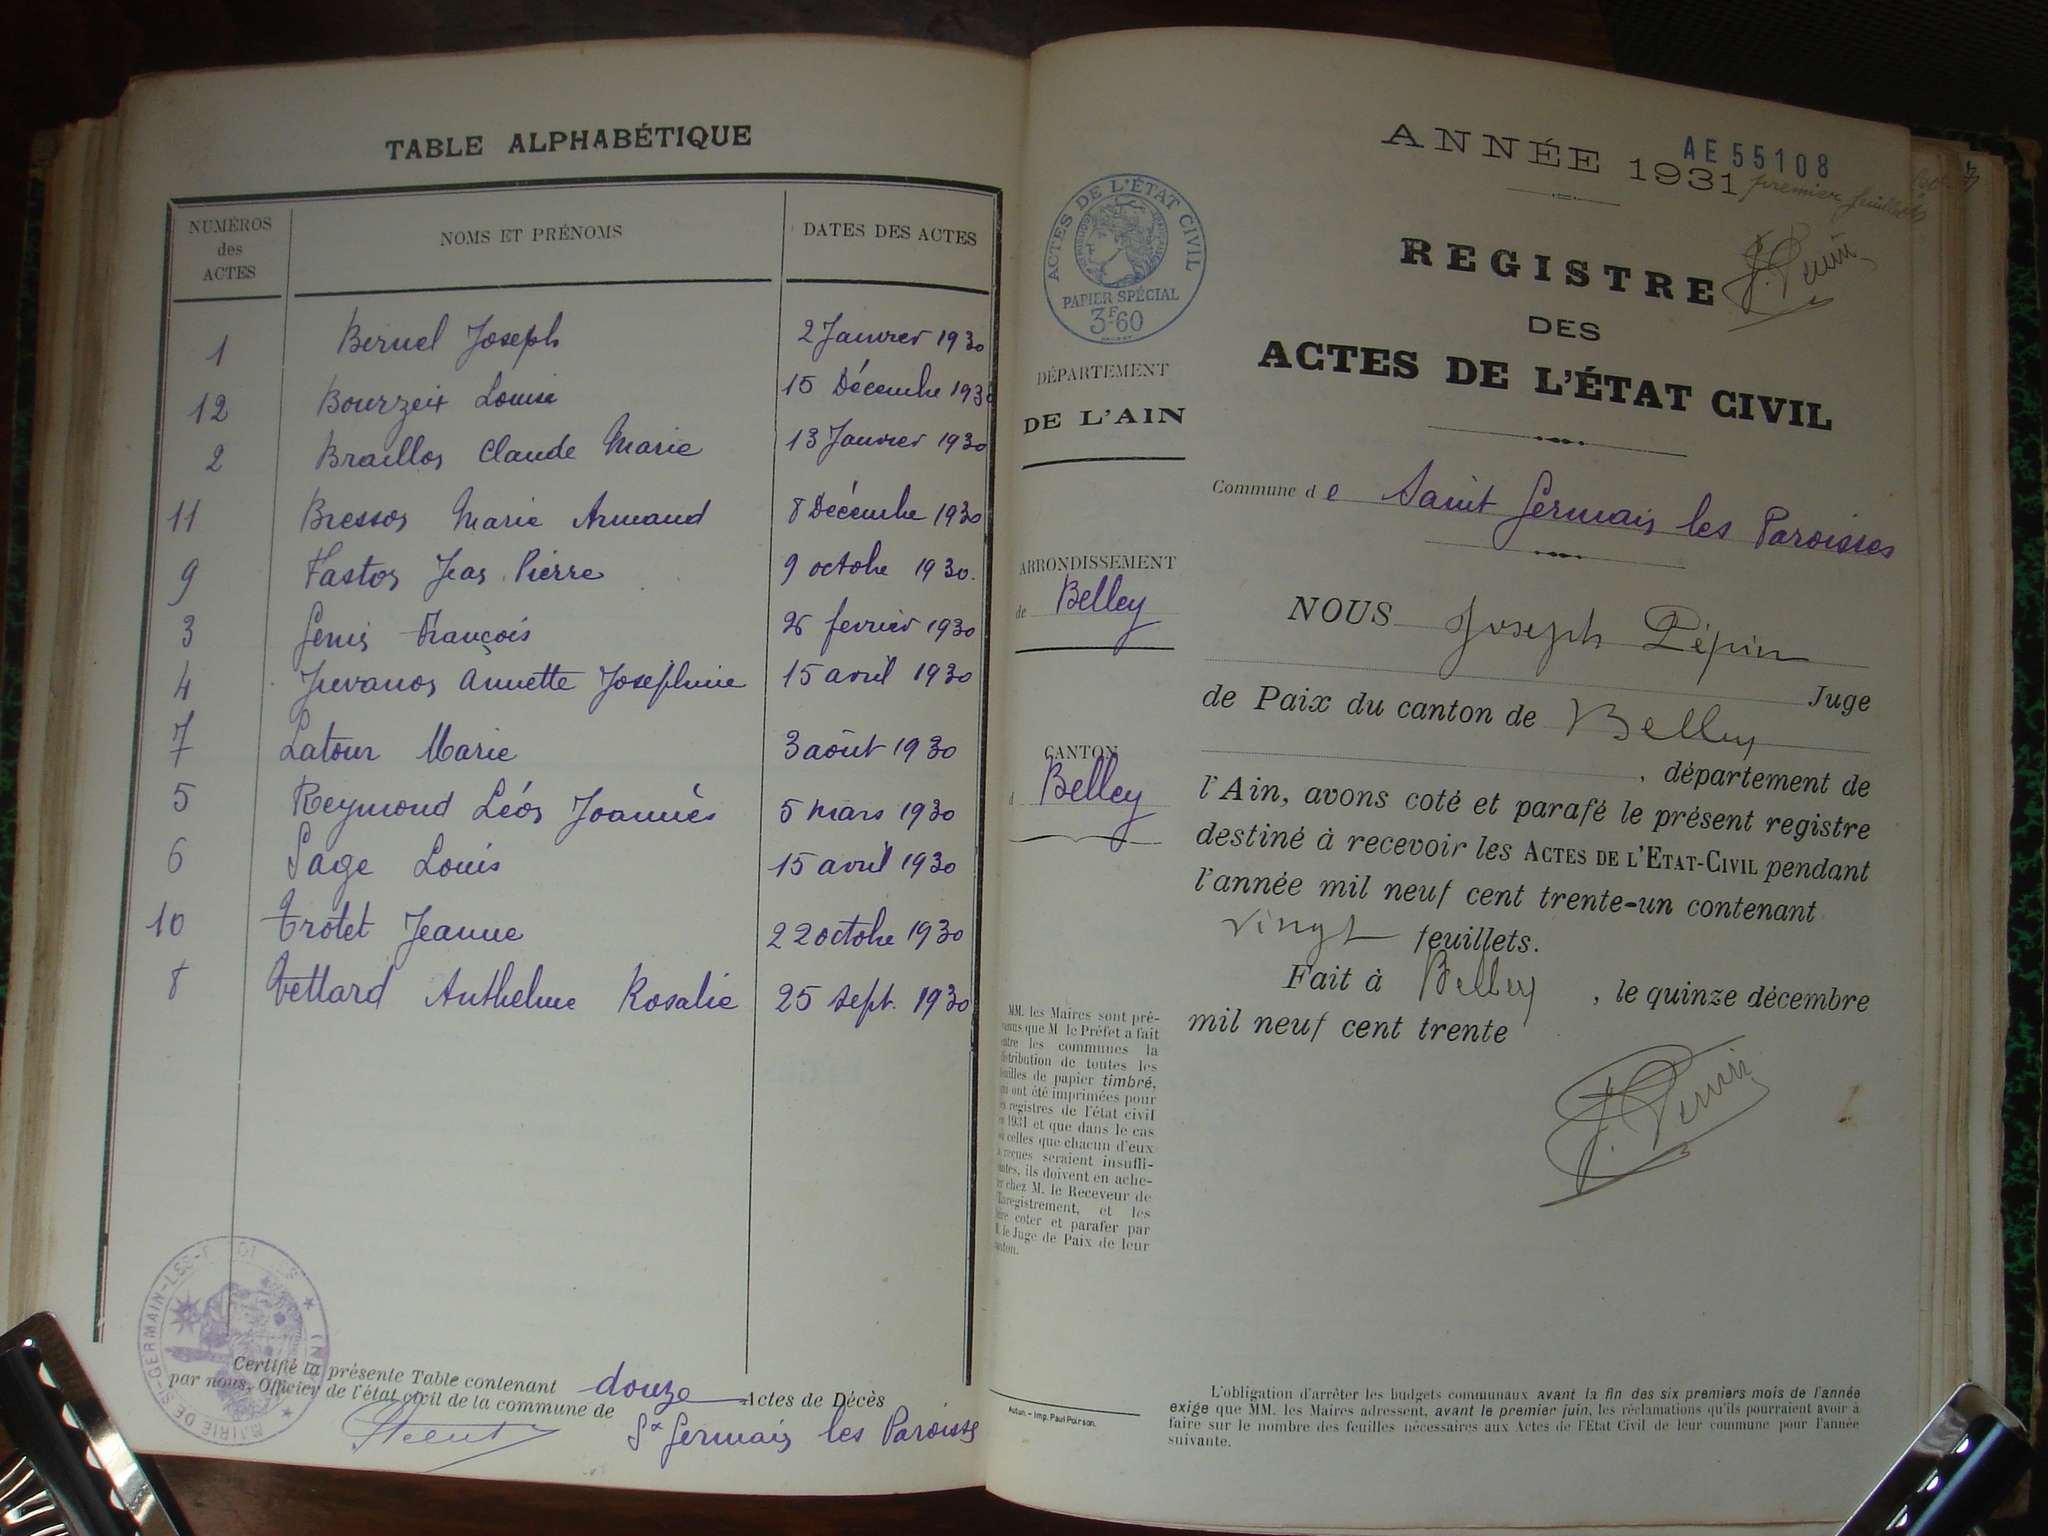 TABLE ALPHABÉTIQUE
NUMÉROS des ACTES NOMS ET PRÉNOMS DATES DES ACTES
1 Beruel Joseph 2 Janvier 1930
12 Bourzeix Louise 15 Décembre 1930
2 Braillon Claude Marie 13 Janvier 1930
11 Bresson Marie Armand 8 Décembre 1930
9 Faston Jean Pierre 9 octobre 1930.
3 Genis François 26 fevrier 1930
4 Juvanon Annette Joséphine 15 avril 1930
7 Latour Marie 3 août 1930
5 Reymond Léon Joannès 5 mars 1930
6 Sage Louis 15 avril 1930
10 Trotet Jeanne 22 octobre 1930
8 Vettard Anthelme Rosalie 25 sept. 1930
MAIRIE DE ST-GERMAIN-LES-
Certifié la présente Table contenant douze Actes de Décès
par nous, Officier de l'état civil de la commune de St Germain les Paroisses
ANNÉE 1931
AE 55108
premier feuillet
ACTES DE L'ÉTAT CIVIL
PAPIER SPÉCIAL
3F60
REGISTRE
DES
ACTES DE L'ÉTAT CIVIL
DÉPARTEMENT
DE L'AIN
Commune de Saint Germain les Paroisses
ARRONDISSEMENT
de Belley
CANTON
d Belley
NOUS Joseph Pépin
Juge
de Paix du canton de Belley
, département de
l'Ain, avons coté et parafé le présent registre
destiné à recevoir les ACTES DE L'ETAT-CIVIL pendant
l'année mil neuf cent trente-un contenant
vingt feuillets.
Fait à Belley, le quinze décembre
mil neuf cent trente
MM. les Maires sont pré-
venus que M. le Préfet a fait
entre les communes la
distribution de toutes les
feuilles de papier timbré,
qui ont été imprimées pour
les registres de l'état civil
en 1931 et que dans le cas
où celles que chacun d'eux
a reçues seraient insuffi-
santes, ils doivent en ache-
ter chez M. le Receveur de
l'Enregistrement, et les
faire coter et parafer par
M. le Juge de Paix de leur
canton.
Autun. - Imp. Paul Poirson.
L'obligation d'arrêter les budgets communaux avant la fin des six premiers mois de l'année
exige que MM. les Maires adressent, avant le premier juin, les réclamations qu'ils pourraient avoir à
faire sur le nombre des feuilles nécessaires aux Actes de l'Etat Civil de leur commune pour l'année
suivante.